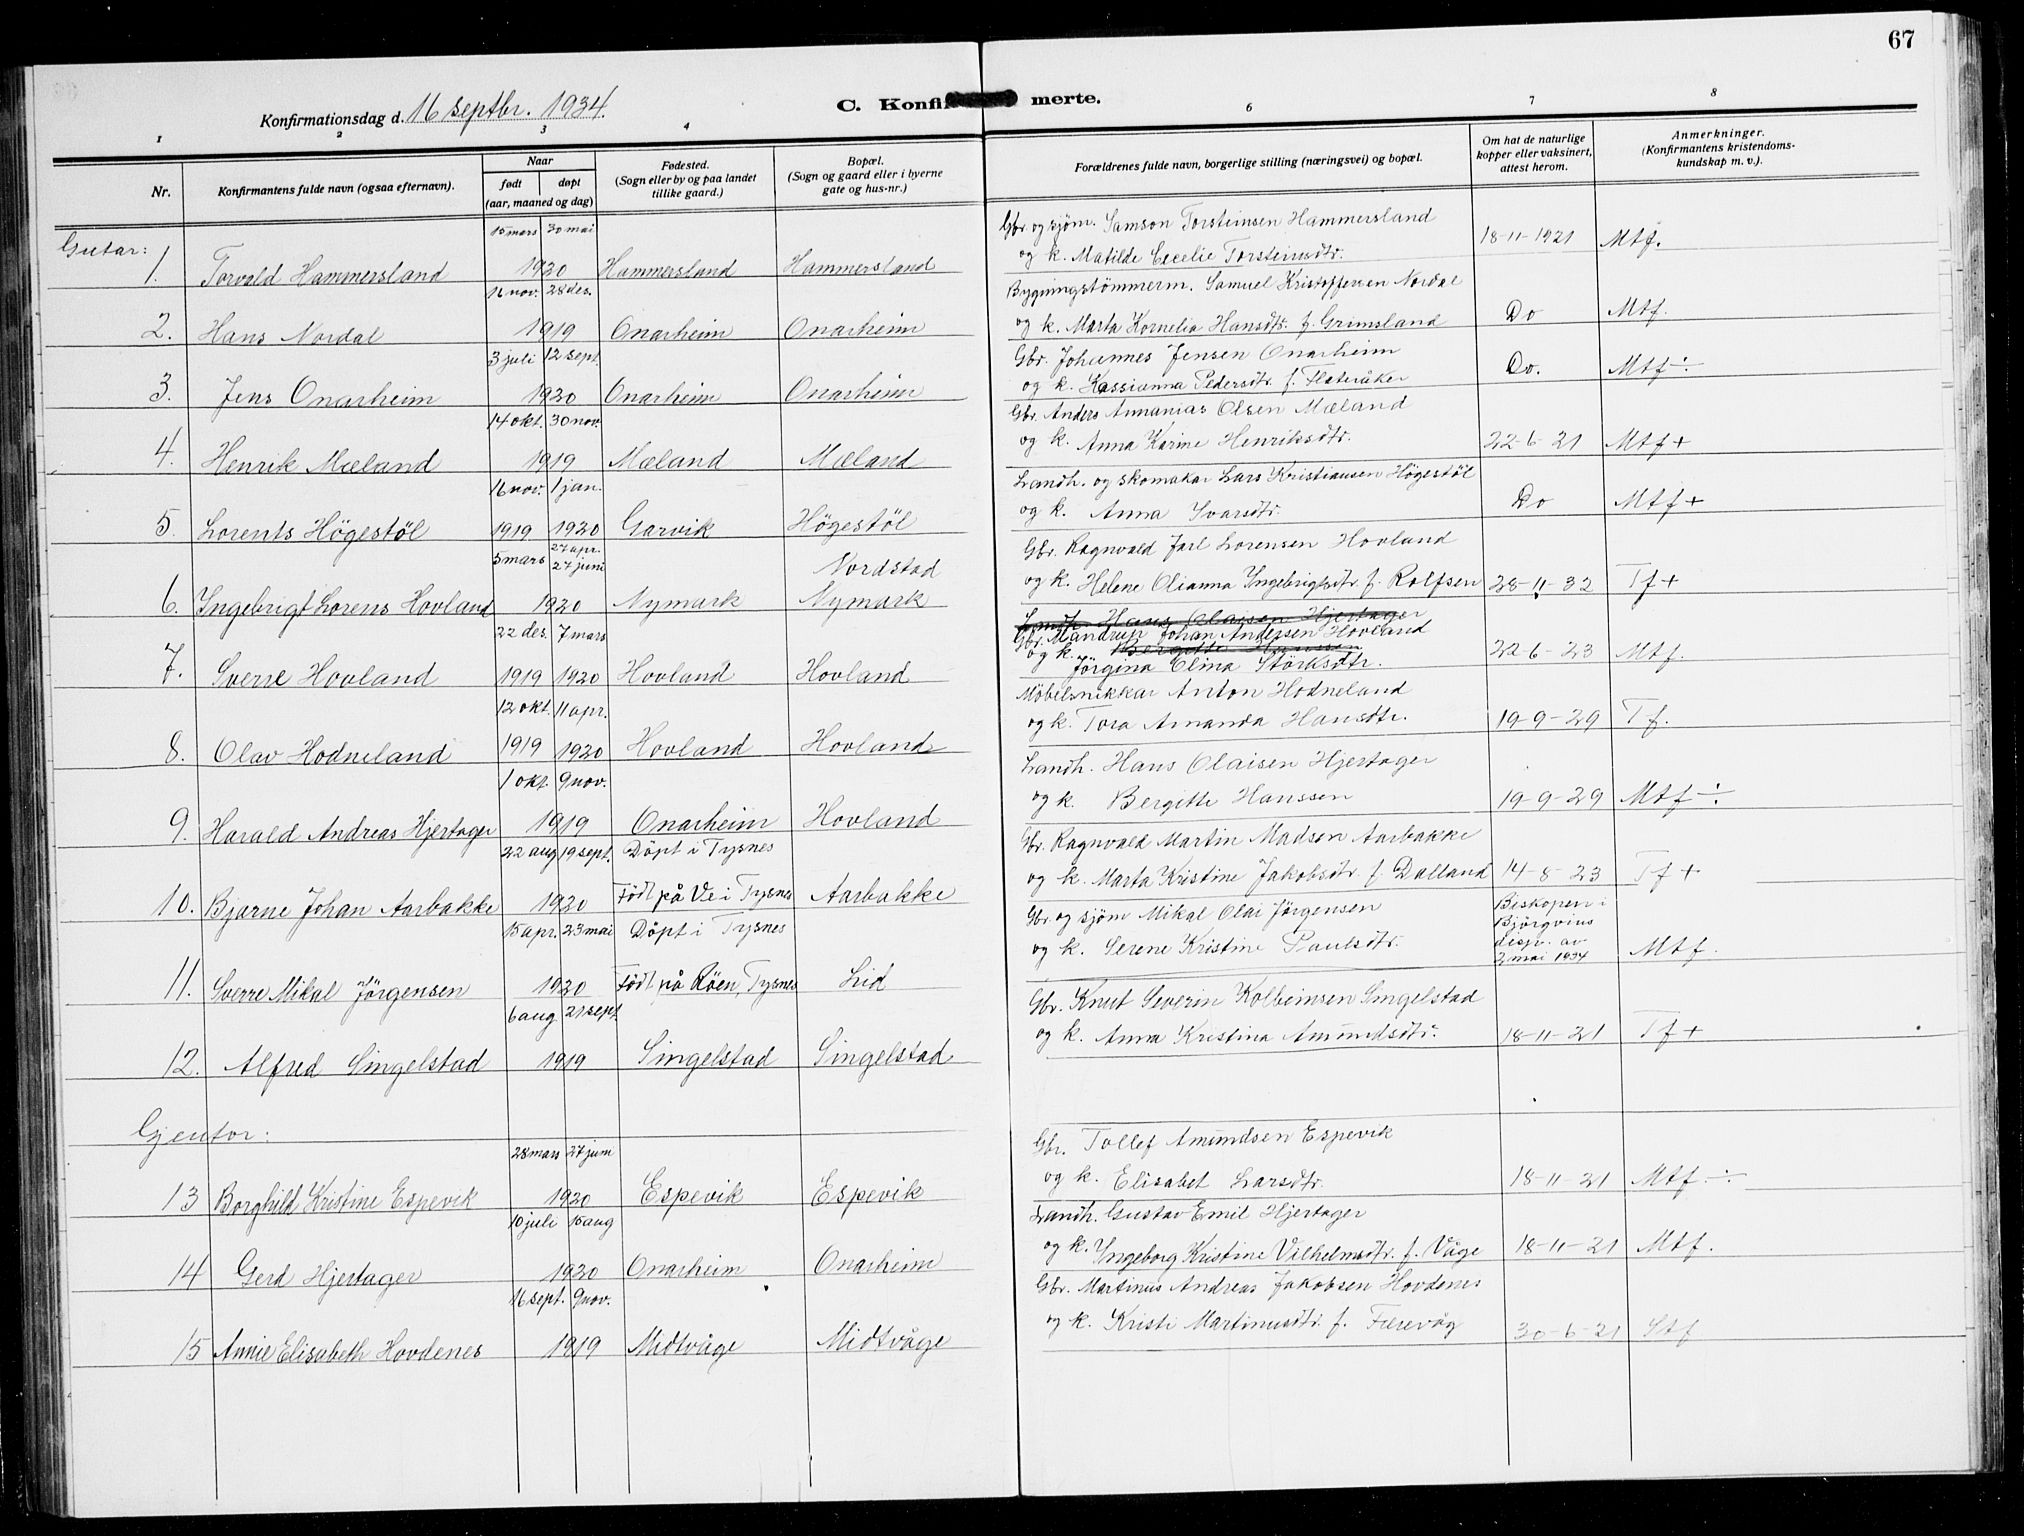 67
Konfirmationsdag d. 16 septbr. 1934.
C. Konfirmerte.
1 2 3 4 6 7 8
Nr. Konfirmantens fulde navn (ogsaa efternavn). Naar født døpt (aar, maaned og dag)
Fødested. (Sogn eller by og paa landet tillike gaard.)
Bopæl. (Sogn og gaard eller i byerne gate og hus-nr.)
Forældrenes fulde navn, borgerlige stilling (næringsvei) og bopæl.
Om hat de naturlige kopper eller vaksinert, attest herom.
Anmerkninger. (Konfirmantens kristendoms-kundskap m. v.).
Gutar:
15 mars 30 mai Gbr og sjöm. Samson Torsteinsen Hammersland
1. Torvald Hammersland 1920 Hammersland Hammersland og k. Matilde Cecelie Torsteinsdtr. 18-11-1921 Mtf.
16 nov. 28 des. Bygningstömmerm. Samuel Kristoffersen Nordal
2. Hans Nordal 1919 Onarheim Onarheim og k. Marta Kornelia Hansdtr. f. Grimsland Do Mtf.
3 juli 12 sept. Gbr. Johannes Jensen Onarheim
3. Jens Onarheim 1920 Onarheim Onarheim og k. Kassianna Pedersdtr. f. Flateråker Do. Mtf ÷
14 okt. 30 nov. Gbr. Anders Annanias Olsen Mæland
4. Henrik Mæland 1919 Mæland Mæland og k. Anna Karine Henriksdtr. 22-6-21 Mtf +
16 nov. 1 jan. Landh. og skomakar Lars Kristiansen Högestöl
5. Lorents Högestöl 1919 1920 Garvik Högestöl og k. Anna Ivarsdtr. Do Mtf +
5 mars 27 apr. 27 juni Nordstad Gbr. Ragnvald Jarl Lorensen Hovland
6. Ingebrigt Lorens Hovland 1920 Nymark Nymark og k. Helene Olianna Ingebrigtsdtr. f. Rolfsen 28-11-32 Tf +
Landh. Hans Olaisen Hjertager
22 des. 7 mars Gbr. Mandrup Johan Andersen Hovland
og k. Bergitte Hanssen
7. Sverre Hovland 1919 1920 Hovland Hovland Jörgina Elina Störksdtr. 22-6-23 Mtf.
12 okt. 11 apr. Möbelsnikkar Anton Hodneland
8. Olav Hodneland 1919 1920 Hovland Hovland og k. Tora Amanda Hansdtr. 19-9-29 Tf.
1 okt. 9 nov. Landh. Hans Olaisen Hjertager
9. Harald Andreas Hjertager 1919 Onarheim Hovland og k. Bergitte Hanssen 19-9-29 Mtf ÷
22 aug 19 sept. Döpt i Tysnes Gbr. Ragnvald Martin Madsen Aarbakke
10. Bjarne Johan Aarbakke 1920 Födt på Ve i Tysnes Aarbakke og k. Marta Kristine Jakobsdtr. f. Dalland 14-8-23 Tf +
15 apr. 23 mai Döpt i Tysnes Gbr og sjöm Mikal Olai Jörgensen
11. Sverre Mikal Jörgensen 1920 Födt på Röen, Tysnes Lid og k. Serene Kristine Paulsdtr. Biskopen i Björgvins disp. av 2 mai 1934 Mtf.
6 aug 21 sept Gbr. Knut Severin Kolbeinsen Singelstad
12. Alfred Singelstad 1919 Singelstad Singelstad og k. Anna Kristina Amundsdtr. 18-11-21 Tf +
Gjentor:
28 mars 27 juni Gbr. Tollef Amundsen Espevik
13 Borghild Kristine Espevik 1920 Espevik Espevik og k. Elisabet Larsdtr. 18-11-21 Mtf. ÷
10 juli 15 aug Landh. Gustav Emil Hjertager
14 Gerd Hjertager 1920 Onarheim Onarheim og k. Ingeborg Kristine Vilhelmsdtr. f. Våge 18-11-21 Mtf.
16 sept. 9 nov. Gbr. Martinus Andreas Jakobsen Hovdenes
15 Annie Elisabeth Hovdenes 1919 Midtvåge Midtvåge og k. Kristi Martinusdtr. f. Færevåg 30-6-21 Stf